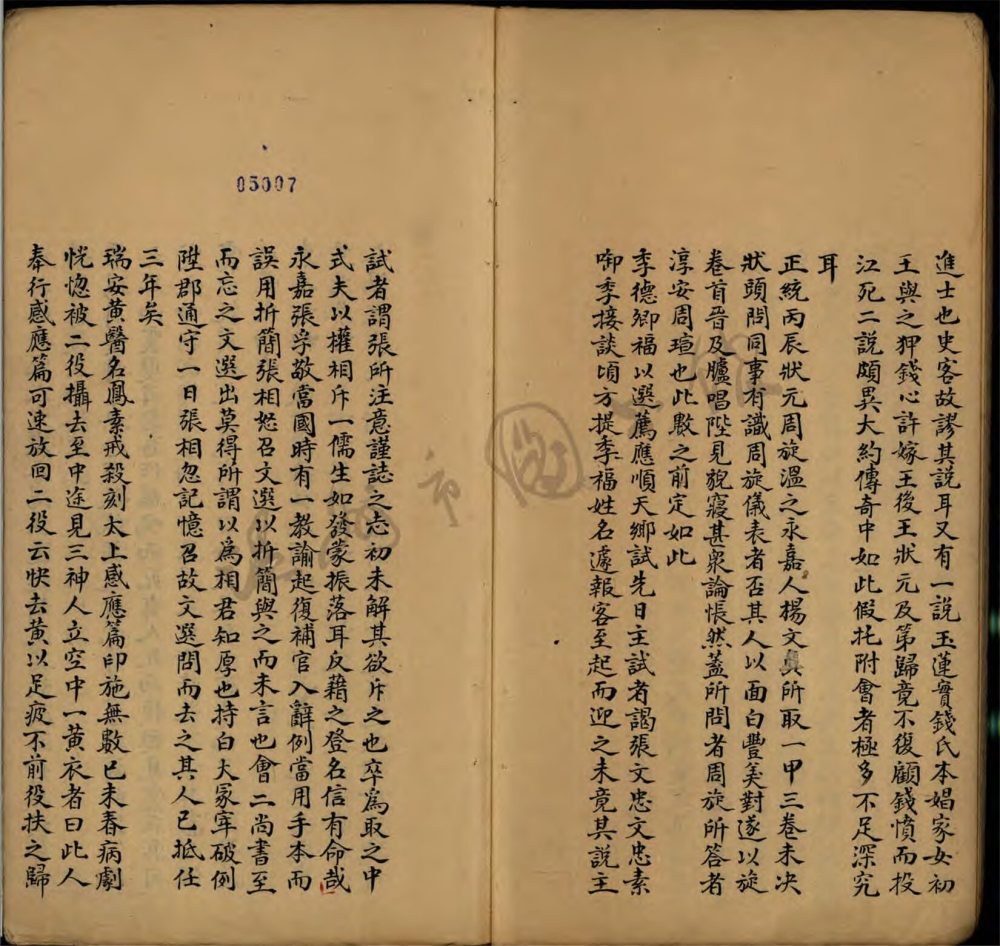 進士也史客故謬其説耳又有一説玉蓮實錢氏本娼家女初
王與之狎錢心許嫁王後王狀元及第歸竟不復顧錢憤而投
江死二説頗異大約傳奇中如此假托附會者極多不足深究
耳
正統丙辰狀元周旋溫之永嘉人楊文貞所取一甲三卷未决
狀頭問同事有識周旋儀表者否其人以面白豐美對遂以旋
卷首晉及臚唱陛見貌寢甚衆論悵然蓋所問者周旋所答者
淳安周瑄也此數之前定如此
季德卿福以選薦應順天鄉試先日主試者謁張文忠文忠素
啣季接談頃方提季福姓名遽報客至起而迎之未竟其説主
試者謂張所注意謹誌之志初未解其欲斥之也卒爲取之中
式夫以權相斥一儒生如發蒙振落耳反藉之登名信有命哉
永嘉張孚敬當國時有一教諭起復補官入辭例當用手本而
誤用折簡張相怒召文選以折簡與之而未言也會二尚書至
而忘之文選出莫得所謂以爲相君知厚也持白大冢宰破例
陞郡通守一日張相忽記憶召故文選問而去之其人已抵任
三年矣
瑞安黄醫名鳳素戒殺刻太上感應篇印施無數已未春病劇
恍惚被二役攝去至中途見三神人立空中一黄衣者曰此人
奉行感應篇可速放回二役云快去黄以足疲不前役扶之歸
05007
市